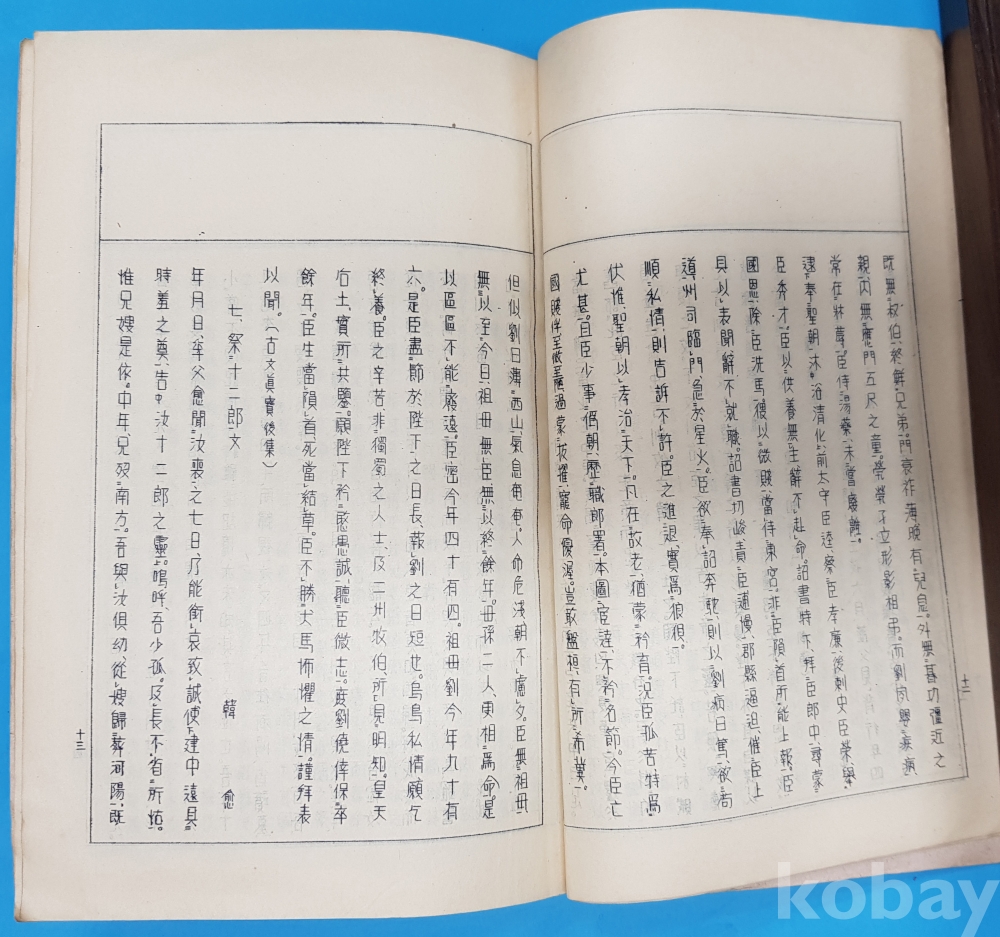 既無叔伯終鮮兄弟門衰祚薄晚有兒息外無朞功彊近之
親內無應門五尺之童煢煢孑立形影相弔而劉夙嬰疾病
常在牀蓐臣侍湯藥未嘗廢離
逮奉聖朝沐浴清化前太守臣逵察臣孝廉後刺史臣榮擧
臣秀才臣以供養無主辭不赴命詔書特下拜臣郎中尋蒙
國恩除臣洗馬猥以微賤當侍東宮非臣隕首所能上報臣
具以表聞辭不就職詔書切峻責臣逋慢郡縣逼迫催臣上
道州司臨門急於星火臣欲奉詔奔馳則以劉病日篤欲苟
順私情則告訴不許臣之進退實爲狼狽
伏惟聖朝以孝治天下凡在故老猶蒙矜育況臣孤苦特爲
尤甚且臣少事僞朝歷職郎署本圖宦達不矜名節今臣亡
國賤俘至微至陋過蒙拔擢寵命優渥豈敢盤桓有所希冀
十二
但以劉日薄西山氣息奄奄人命危淺朝不慮夕臣無祖母
無以至今日祖母無臣無以終餘年母孫二人更相爲命是
以區區不能廢遠臣密今年四十有四祖母劉今年九十有
六是臣盡節於陛下之日長報劉之日短也烏鳥私情願乞
終養臣之辛苦非獨蜀之人士及二州牧伯所見明知皇天
后土實所共鑒願陛下矜愍愚誠聽臣微志庶劉僥倖保卒
餘年臣生當隕首死當結草臣不勝犬馬怖懼之情謹拜表
以聞(古文眞寶後集)
七、祭十二郎文 韓 愈
年月日季父愈聞汝喪之七日乃能銜哀致誠使建中遠具
時羞之奠告中汝十二郎之靈嗚呼吾少孤及長不省所怙
惟兄嫂是依中年兄歿南方吾與汝俱幼從嫂歸葬河陽旣
十三
kobay